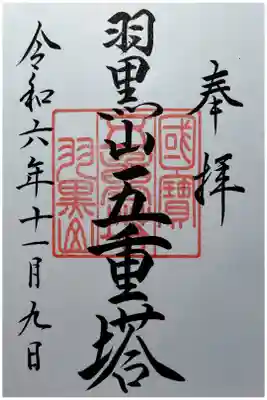 奉拝
羽黒山五重塔
令和六年十一月九日
國寶
羽黒山